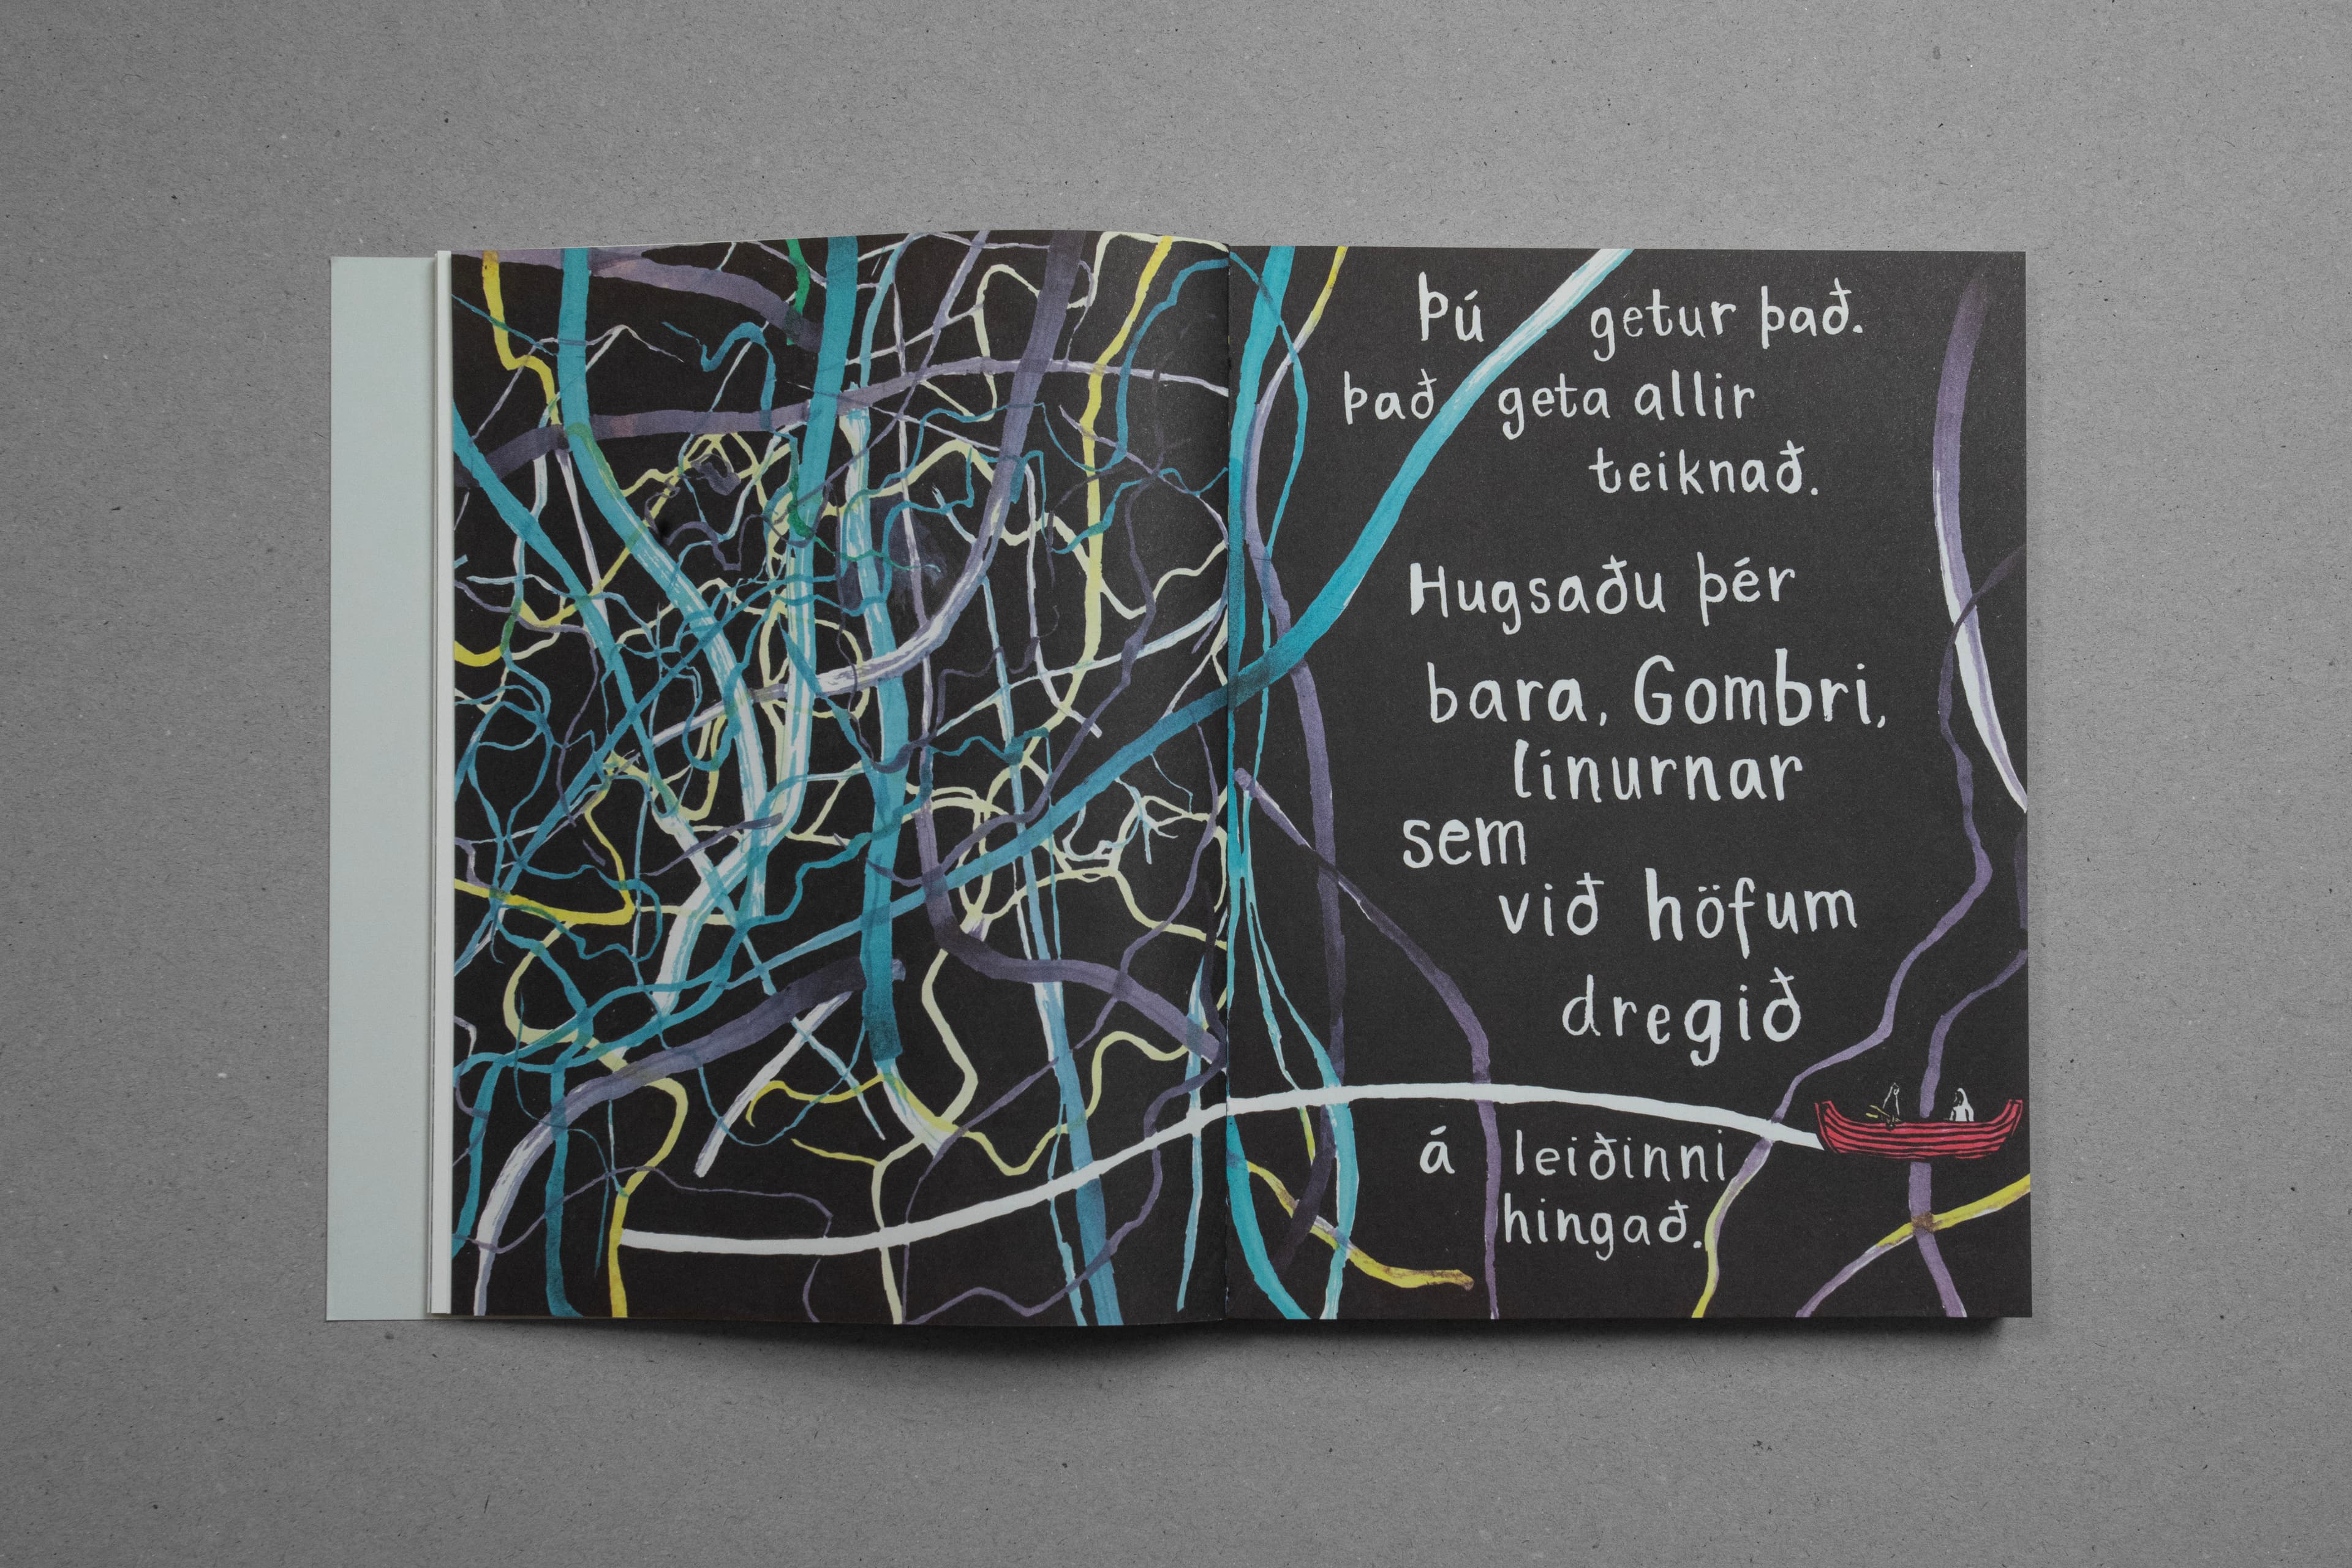 Þú getur það.
Það geta allir
teiknað.
Hugsaðu þér
bara, Gombri,
línurnar
sem
við höfum
dregið
á leiðinni
hingað.